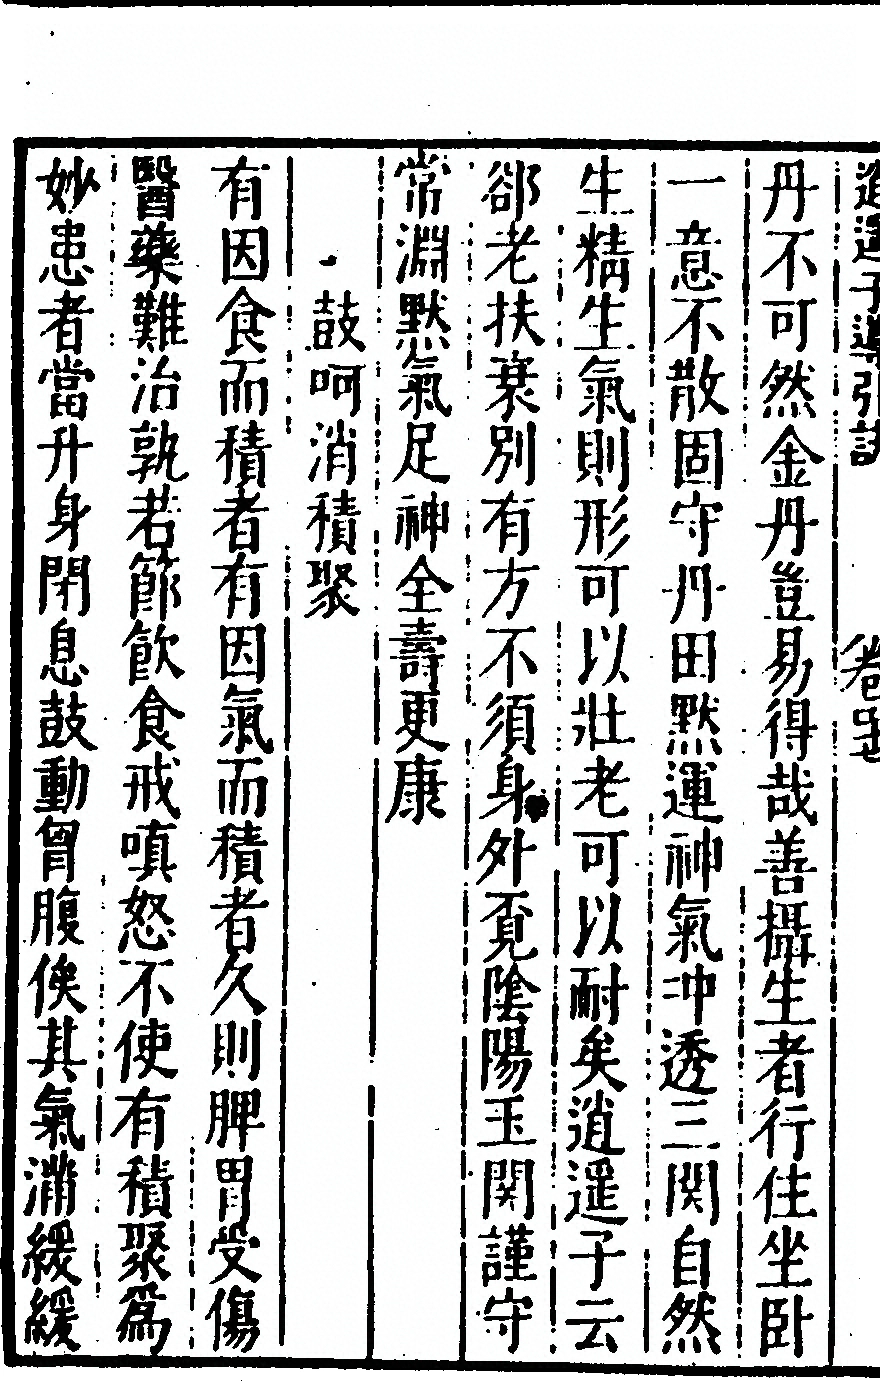 逍遥子導引訣
丹不可然金丹豈易得哉善攝生者行住坐卧
一意不散固守丹田默運神氣冲透三関自然
生精生氣則形可以壯老可以耐矣逍遥子云
郤老扶衰別有方不須身外覔陰陽玉関謹守
常淵默氣足神全壽更康
鼓呵消積聚
有因食而積者有因氣而積者久則脾胃受傷
醫藥難治孰若節飲食戒嗔怒不使有積聚爲
妙患者當升身閉息鼓動胷腹俟其氣滿緩緩